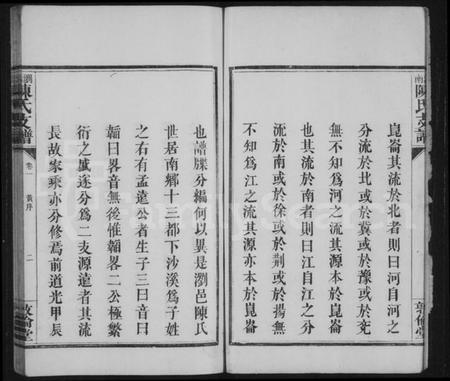 崑崙其流於北者則曰河自河之
分流於北或於冀或於豫或於兗
無不知為河之流其源本於崑崙
也其流於南者則曰江自江之分
流於南或於徐或於荆或於揚無
不知為江之流其源亦本於崑崙
也譜牒分編何以異是瀏邑陳氏
世居南鄉十三都下沙溪為子姓
之右有孟遠公者生子三曰音曰
韜曰畧音無後惟韜畧二公極繁
衍之盛遂分為二支源遠者其流
長故家乘亦分修焉前道光甲辰
陳氏支譜
卷一
黃序
二
敦倫堂